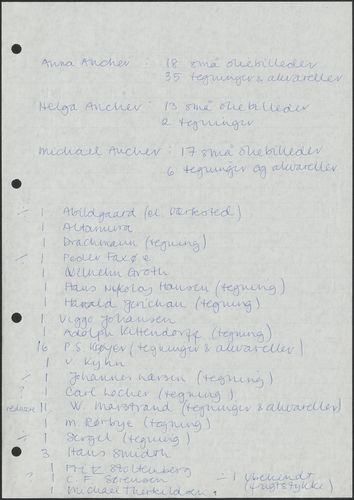 Anna Ancher : 18 små oliebilleder
35 tegninger & akvareller
Helga Ancher : 13 små oliebilleder
2 tegninger
Michael Ancher : 17 små oliebilleder
6 tegninger og akvareller
1 Abildgaard (el. værksted)
1 Altamura
1 Drachmann (tegning)
1 Peder Faxøe
1 Wilhelm Groth
1 Hans Nikolaj Hansen (tegning)
1 Harald Jerichau (tegning)
1 Viggo Johansen
1 Adolph Kittendorff (tegning)
16 P.S. Krøyer (tegninger & akvareller)
1 V. Kyhn
1 Johannes Larsen (tegning)
1 Carl Locher (tegning)
11 W. Marstrand (tegninger & akvareller)
1 M. Rørbye (tegning)
1 Sergel (tegning)
3 Hans Smidth
1 Fritz Stoltenberg
1 C. F. Sørensen
1 Michael Therkildsen
1 Ubekendt
(frugtstykke)